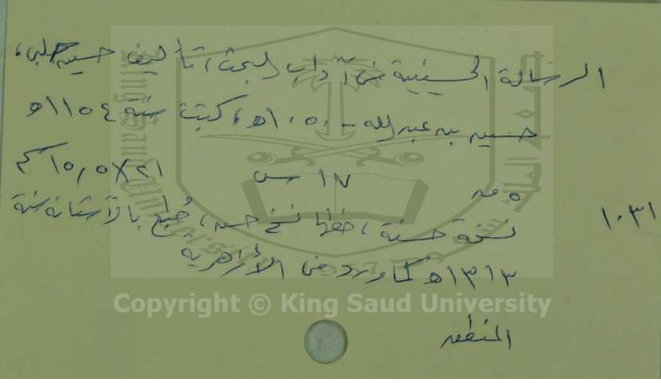 الرسالة الحسينية في آداب البحث، تأليف حسين چلبي،
حسين بن عبد الله - ١٠٥٠هـ، كتبت سنة ١١٥٤هـ
٥ ص ١٧ س ٢١×١٥,٥ سم
١٠٣١
نسخة حسنة، خطها نسخ حسن، طبع بالآستانة سنة
١٣١٣هـ كما ورد في الأزهرية
المنطق
Copyright © King Saud University